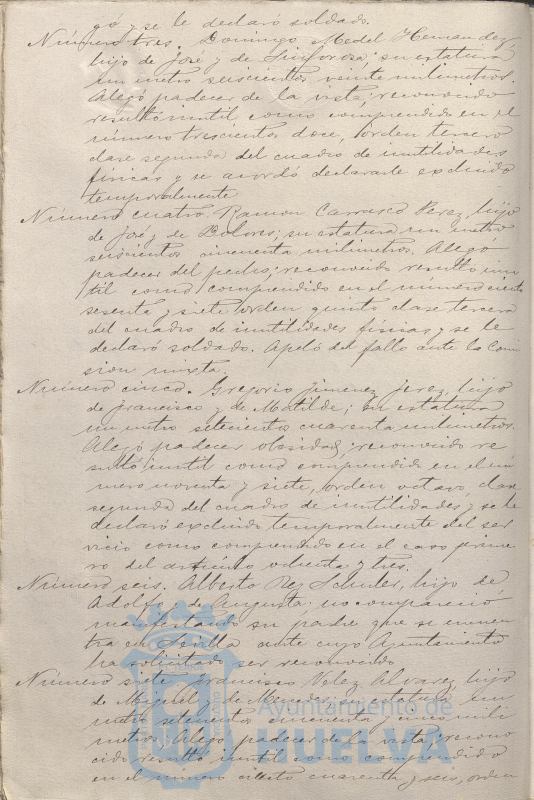 gó y se le declaró soldado.
Número tres. Domingo Medel Hernandez,
hijo de José y de Sinforosa; su estatura
un metro seiscientos veinte milimetros.
Alegó padecer de la vista; reconocido
resultó inutil, como comprendido en el
número trescientos doce, orden tercero
clase segunda del cuadro de inutilidades
fisicas y se acordó declararle excluido
temporalmente
Número cuatro. Ramon Carrasco Perez, hijo
de José y de Dolores; su estatura un metro
seiscientos cincuenta milimetros. Alegó
padecer del pecho; reconocido resultó inu
til como comprendido en el número ciento
sesenta y siete orden quinto clase tercera
del cuadro de inutilidades fisicas y se le
declaró soldado. Apeló del fallo ante la Comi
sion mixta.
Número cinco. Gregorio Jimenez Jerez, hijo
de Francisco y de Matilde; su estatura
un metro setecientos cuarenta milimetros.
Alegó padecer obesidad; reconocido re
sultó inutil como comprendido en el nú
mero noventa y siete, orden octavo, clase
segunda del cuadro de inutilidades y se le
declaró excluido temporalmente del ser
vicio como comprendido en el caso prime
ro del articulo ochenta y tres.
Número seis. Alberto Rey Schuler, hijo de
Adolfo y de Augusta; no compareció
manifestando su padre que se encuen
tra en Sevilla ante cuyo Ayuntamiento
ha solicitado ser reconocido
Número siete Francisco Velez Alvarez, hijo
de Miguel y de Mercedes; estatura un
metro setecientos cincuenta y cinco mili
metros. Alegó padecer de la vista; recono
cido resultó inutil como comprendido
en el número ciento cuarenta y seis, orden
Ayuntamiento de
HUELVA